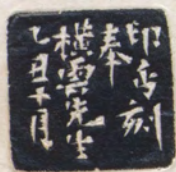 印丐刻
奉
橫雲先生
乙丑十月